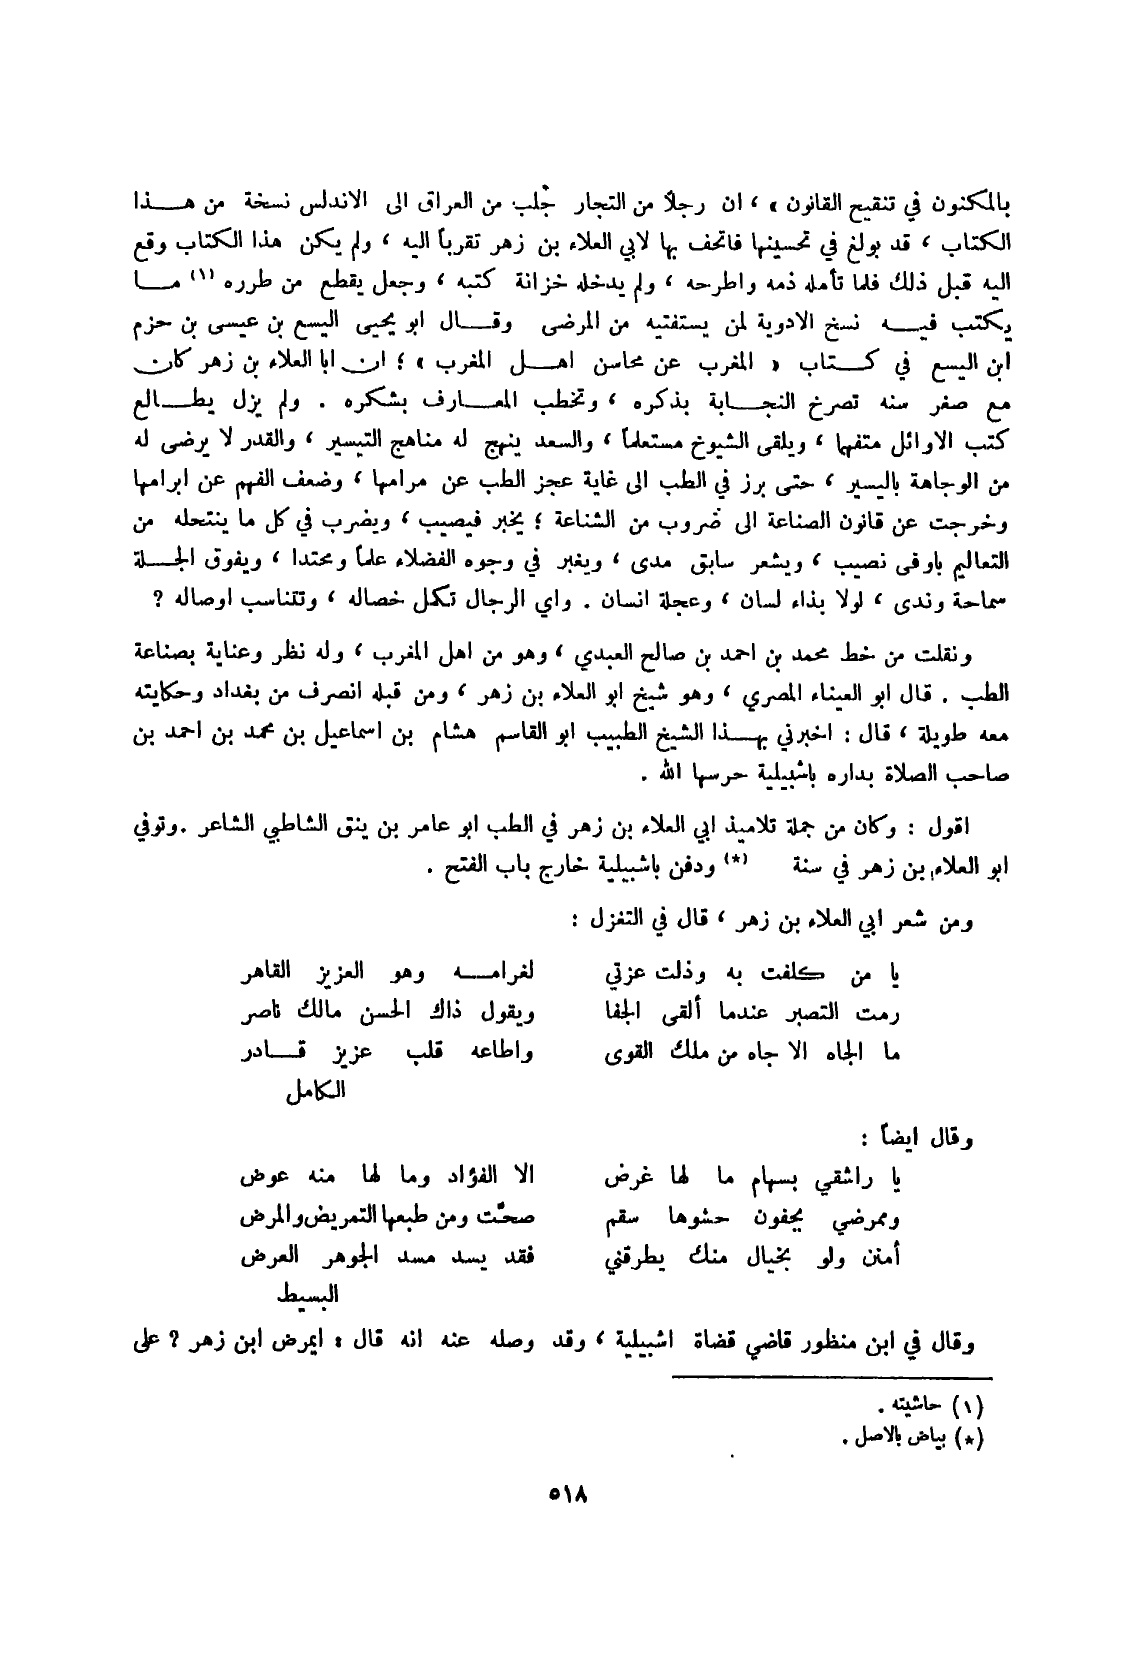 بالمكنون في تنقيح القانون » ، ان رجلاً من التجار جُلب من العراق الى الاندلس نسخة من هذا
الكتاب ، قد بولغ في تحسينها فاتحف بها لابي العلاء بن زهر تقرباً اليه ، ولم يكن هذا الكتاب وقع
اليه قبل ذلك فلما تأمله ذمه واطرحه ، ولم يدخله خزانة كتبه ، وجعل يقطع من طرره (١) ما
يكتب فيه نسخ الادوية لمن يستفتيه من المرضى وقال ابو يحيى اليسع بن عيسى بن حزم
ابن اليسع في كتاب « المغرب عن محاسن اهل المغرب » ؛ ان ابا العلاء بن زهر كان
مع صغر سنه تصرخ النجابة بذكره ، وتخطب المعارف بشكره . ولم يزل يطالع
كتب الاوائل متفهما ، ويلقى الشيوخ مستعلماً ، والسعد ينهج له مناهج التيسير ، والقدر لا يرضى له
من الوجاهة باليسير ، حتى برز في الطب الى غاية عجز الطب عن مرامها ، وضعف الفهم عن ابرامها
وخرجت عن قانون الصناعة الى ضروب من الشناعة ؛ يخبر فيصيب ، ويضرب في كل ما ينتحله من
التعاليم باوفى نصيب ، ويشعر سابق مدى ، ويغبر في وجوه الفضلاء علماً ومحتدا ، ويفوق الجلة
سماحة وندى ، لولا بذاء لسان ، وعجلة انسان . واي الرجال تكمل خصاله ، وتتناسب اوصاله ?
ونقلت من خط محمد بن احمد بن صالح العبدي ، وهو من اهل المغرب ، وله نظر وعناية بصناعة
الطب . قال ابو العيناء المصري ، وهو شيخ ابو العلاء بن زهر ، ومن قبله انصرف من بغداد وحكايته
معه طويلة ، قال : اخبرني بهذا الشيخ الطبيب ابو القاسم هشام بن اسماعيل بن محمد بن احمد بن
صاحب الصلاة بداره باشبيلية حرسها الله .
اقول : وكان من جملة تلاميذ ابي العلاء بن زهر في الطب ابو عامر بن ينق الشاطبي الشاعر . وتوفي
ابو العلاء بن زهر في سنة (*) ودفن باشبيلية خارج باب الفتح .
ومن شعر ابي العلاء بن زهر ، قال في التغزل :
يا من كلفت به وذلت عزتي لغرامه وهو العزيز القاهر
رمت التصبر عندما ألقى الجفا ويقول ذاك الحسن مالك ناصر
ما الجاه الا جاه من ملك القوى واطاعه قلب عزيز قادر
الكامل
وقال ايضاً :
يا راشقي بسهام ما لها غرض الا الفؤاد وما لها منه عوض
وممرضي بجفون حشوها سقم صحّت ومن طبعها التمريض والمرض
أمنن ولو بخيال منك يطرقني فقد يسد مسد الجوهر العرض
البسيط
وقال في ابن منظور قاضي قضاة اشبيلية ، وقد وصله عنه انه قال : ايمرض ابن زهر ? على
(١) حاشيته .
(*) بياض بالاصل .
٥١٨